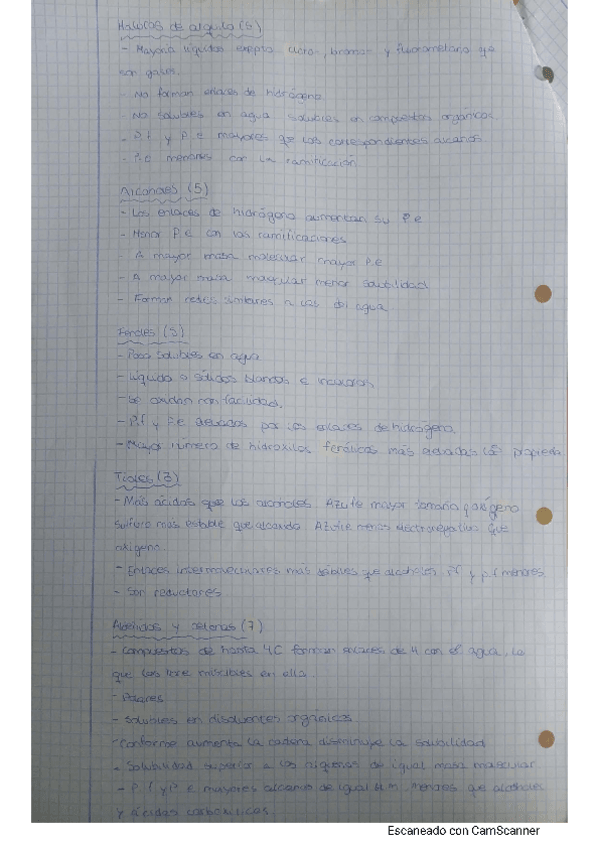 Haluros de alquilo (5)
- Mayoría líquidos excepto cloro, bromo y fluorometano que
son gases.
- No forman enlaces de hidrógeno
- No solubles en agua solubles en compuestos orgánicos.
- P.f y P.e mayores que los correspondientes alcanos
- P.e menores con la ramificación
Alcoholes (5)
- Los enlaces de hidrógeno aumentan su P.e
- Menor P.e con las ramificaciones
- A mayor masa molecular mayor P.e
- A mayor masa molecular menor solubilidad
- Forman redes similares a las del agua
Fenoles (5)
- Poco solubles en agua
- Líquido o sólidos blandos e incoloros
- Se oxidan con facilidad.
- P.f y P.e elevados por los enlaces de hidrógeno
- Mayor número de hidroxilos fenólicos más elevadas las propieda
Tioles (3)
- Más ácidos que los alcoholes Azufre mayor tamaño q oxígeno
sulfuro más estable que alcoxido Azufre menos electronegativo que
oxígeno
- Enlaces intermoleculares más débiles que alcoholes P.f y p.f menores
- Son reductores
Aldehídos y cetonas (7)
- Compuestos de hasta 4C forman enlaces de H con el agua, lo
que los hace miscibles en ella.
- Polares
- Solubles en disolventes orgánicos
- Conforme aumenta la cadena disminuye la solubilidad
- Solubilidad superior a los de igual masa molecular
- P.f y P.e mayores alcanos de igual M.m. Menores que alcoholes
y ácidos carboxílicos.
Escaneado con CamScanner